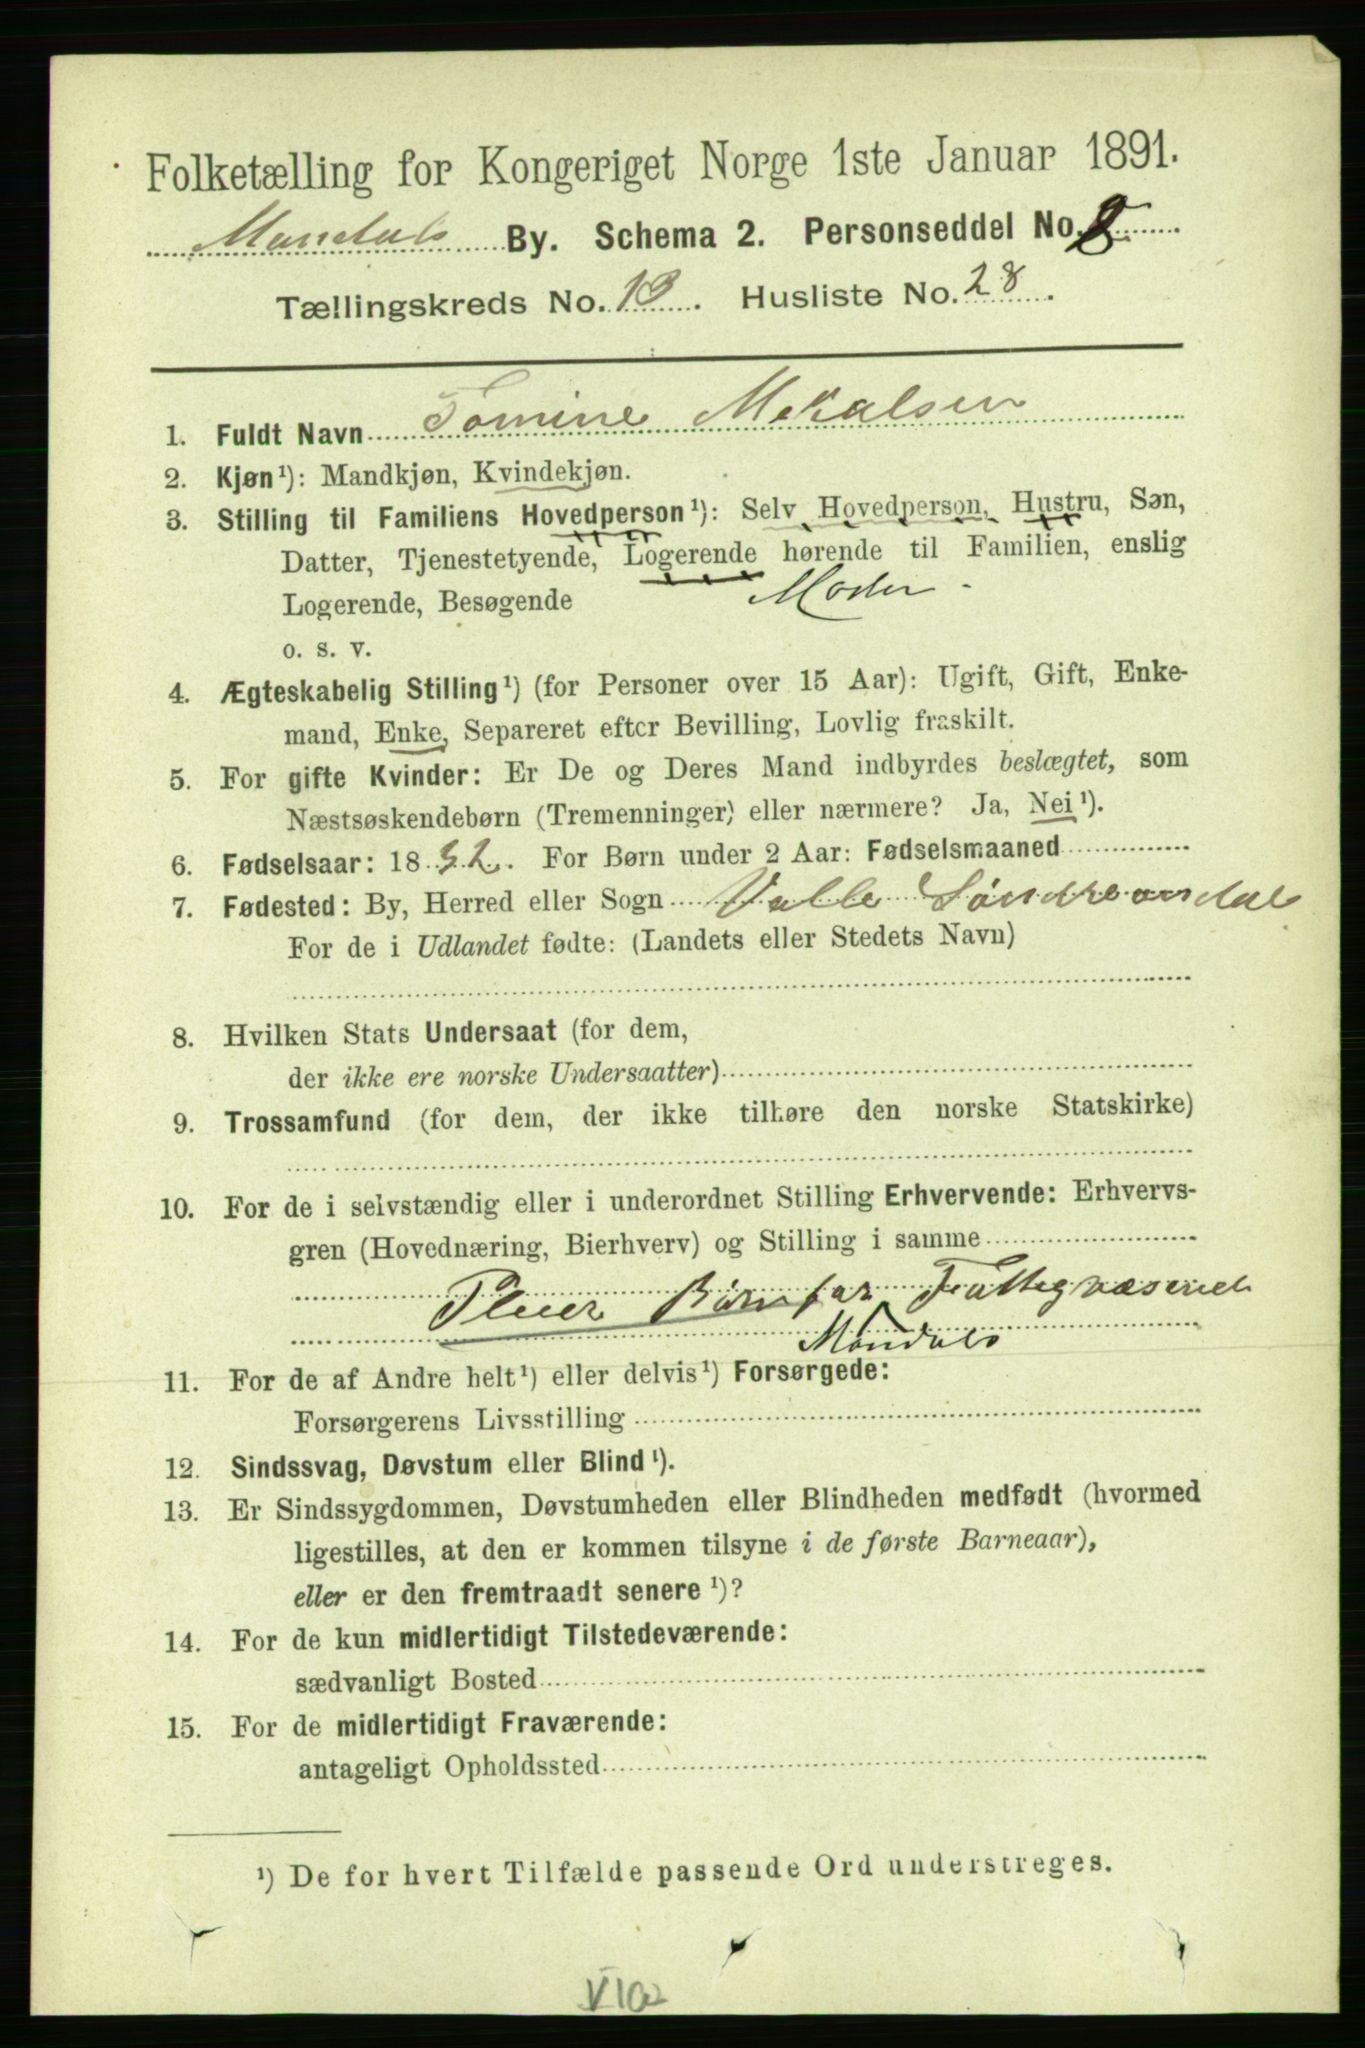 Folketælling for Kongeriget Norge 1ste Januar 1891.
Mandals By. Schema 2. Personseddel No. 8
Tællingskreds No. 13. Husliste No. 28.
1. Fuldt Navn Tomine Mekalsen
2. Kjøn¹): Mandkjøn, Kvindekjøn.
3. Stilling til Familiens Hovedperson¹): Selv Hovedperson, Hustru, Søn,
Datter, Tjenestetyende, Logerende hørende til Familien, enslig
Logerende, Besøgende Moder -
o. s. v.
4. Ægteskabelig Stilling¹) (for Personer over 15 Aar): Ugift, Gift, Enke-
mand, Enke, Separeret efter Bevilling, Lovlig fraskilt.
5. For gifte Kvinder: Er De og Deres Mand indbyrdes beslægtet, som
Næstsøskendebørn (Tremenninger) eller nærmere? Ja, Nei¹).
6. Fødselsaar: 1832. For Børn under 2 Aar: Fødselsmaaned
7. Fødested: By, Herred eller Sogn Valle
For de i Udlandet fødte: (Landets eller Stedets Navn)
8. Hvilken Stats Undersaat (for dem,
der ikke ere norske Undersaatter)
9. Trossamfund (for dem, der ikke tilhøre den norske Statskirke)
10. For de i selvstændig eller i underordnet Stilling Erhvervende: Erhvervs-
gren (Hovednæring, Bierhverv) og Stilling i samme
Pleier Børn for Fattigvæsenet
Mandals
11. For de af Andre helt¹) eller delvis¹) Forsørgede:
Forsørgerens Livsstilling
12. Sindssvag, Døvstum eller Blind¹).
13. Er Sindssygdommen, Døvstumheden eller Blindheden medfødt (hvormed
ligestilles, at den er kommen tilsyne i de første Barneaar),
eller er den fremtraadt senere¹)?
14. For de kun midlertidigt Tilstedeværende:
sædvanligt Bosted
15. For de midlertidigt Fraværende:
antageligt Opholdssted
¹) De for hvert Tilfælde passende Ord understreges.